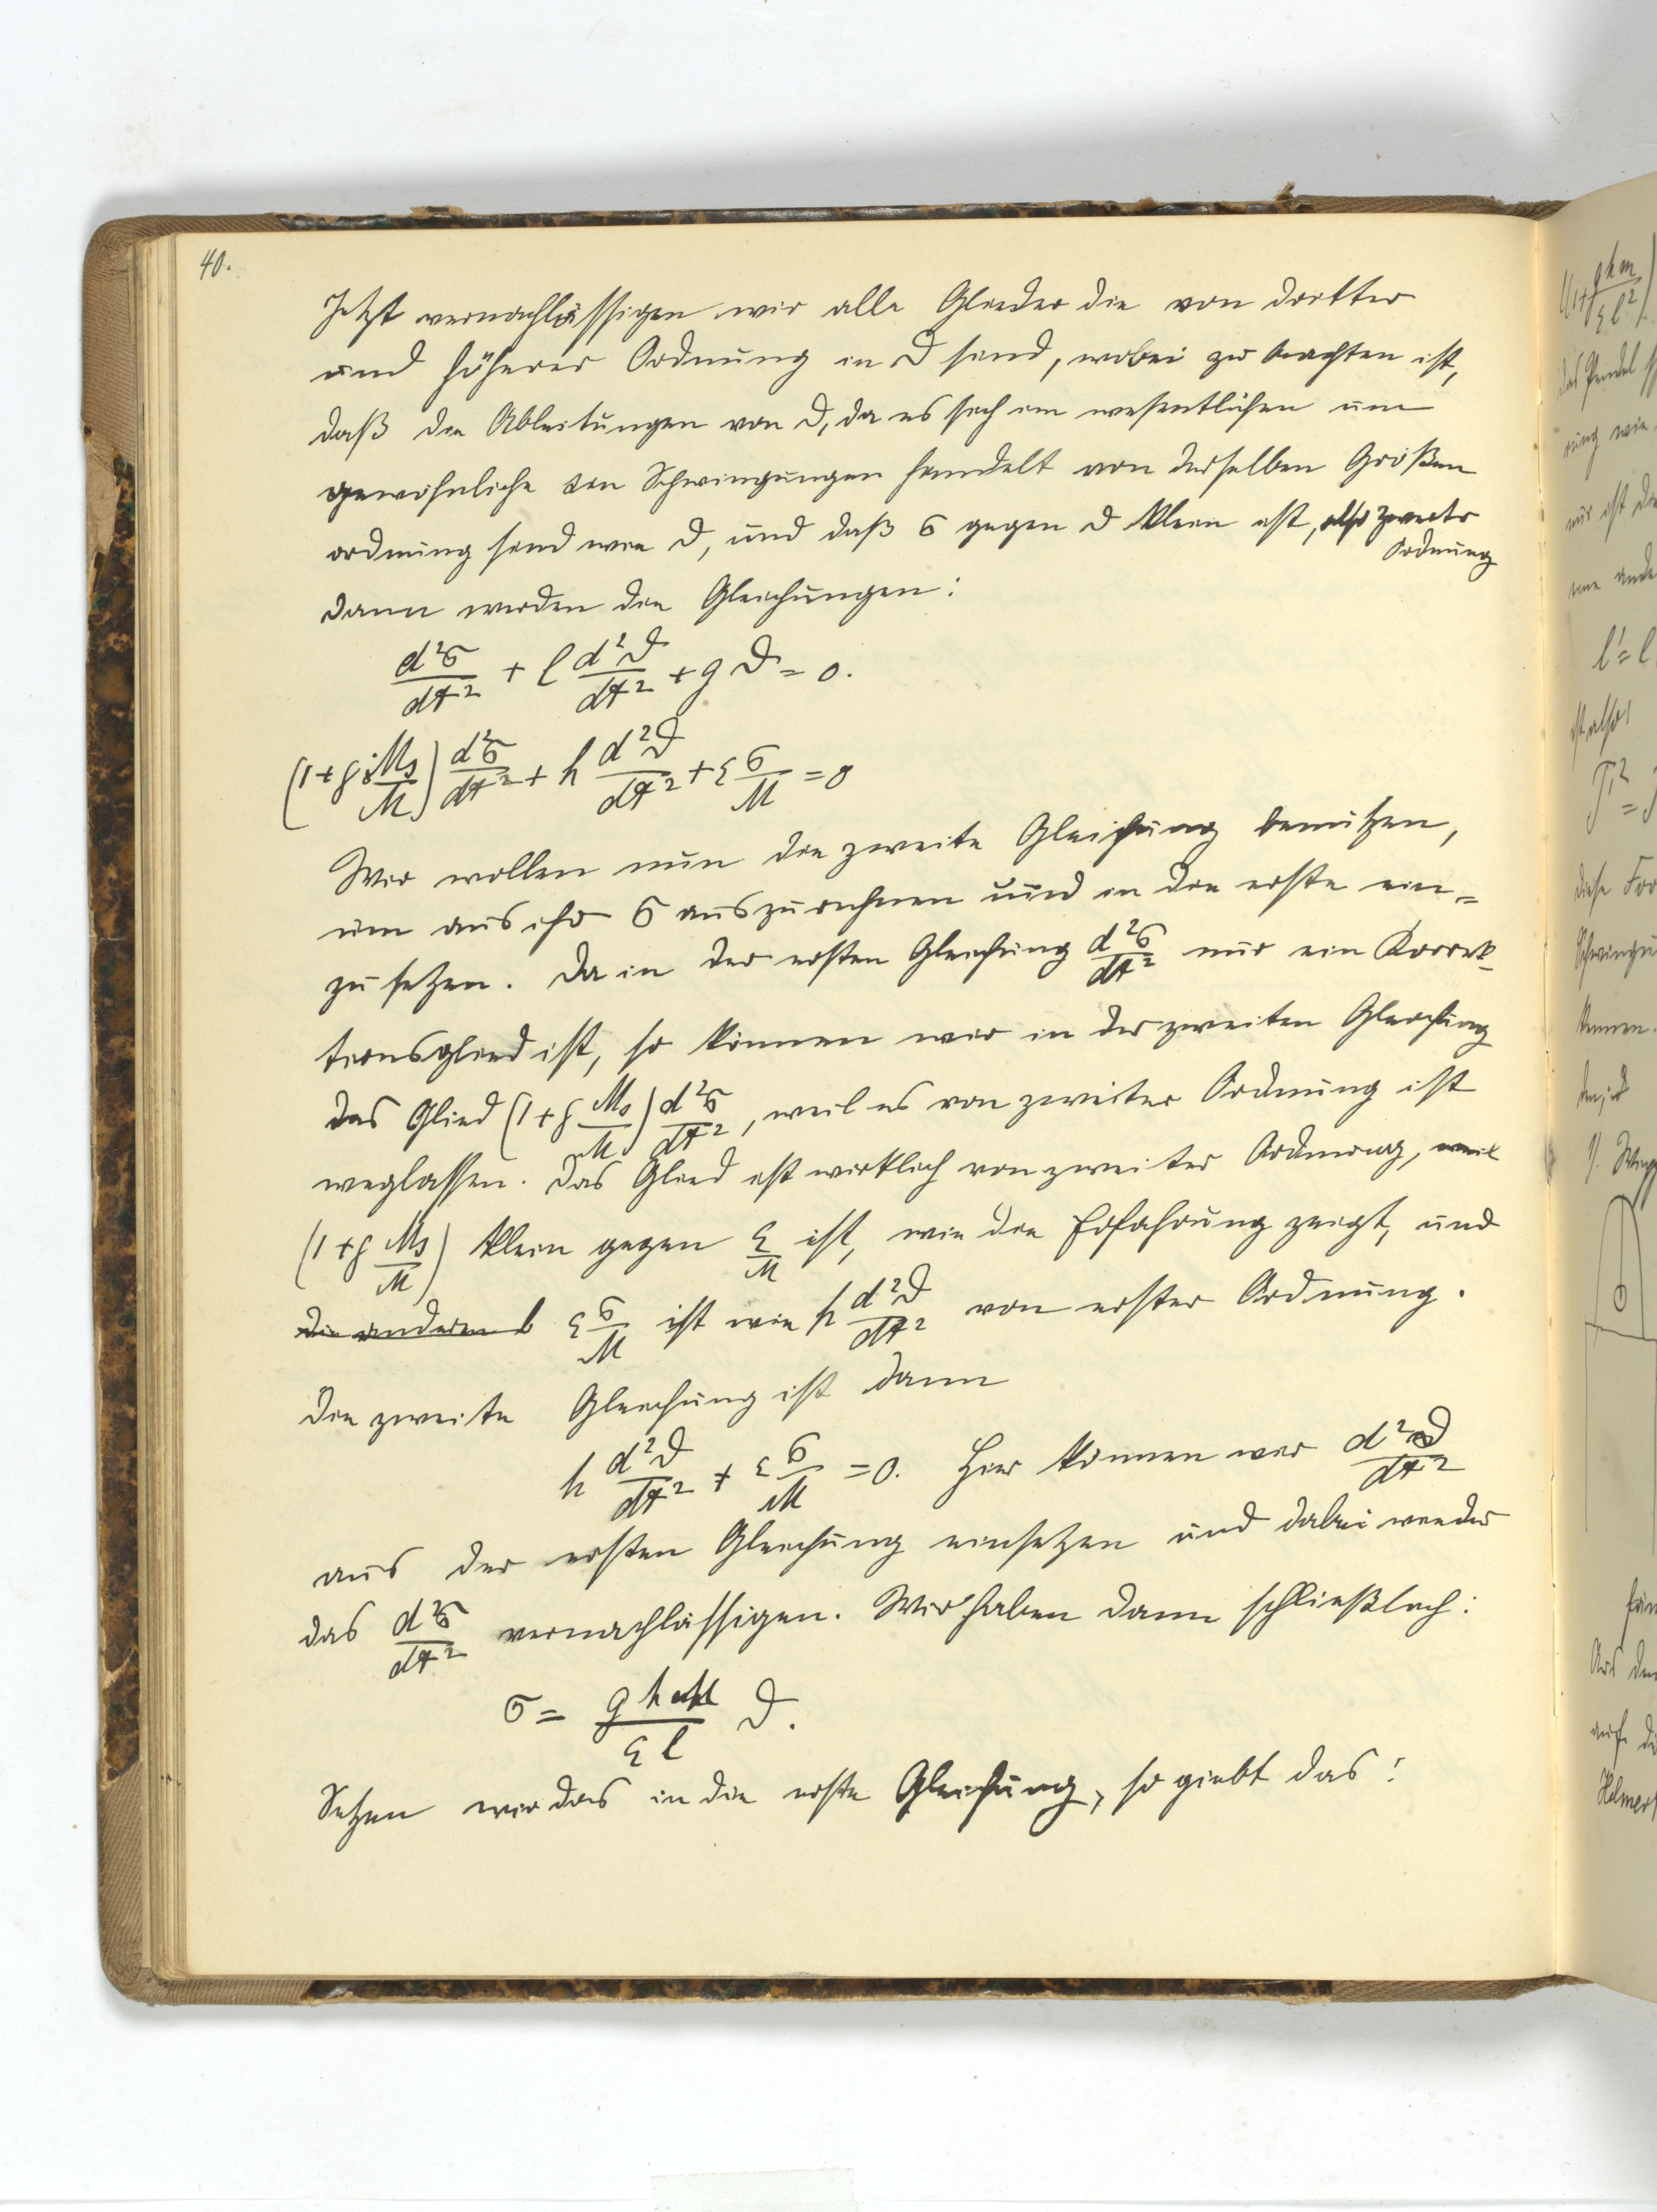 40.
Jetzt vernachlässigen wir alle Glieder die von dritter
und höherer Ordnung in ϑ sind, wobei zu beachten ist,
daß die Ableitungen von ϑ, da es sich im wesentlichen um
gewöhnliche Schwingungen handelt von derselben Größen
ordnung sind wie ϑ, und daß σ gegen ϑ klein ist, also zweiter
Ordnung
Dann werden die Gleichungen:
d²σ/dt² + l d²ϑ/dt² + g ϑ = 0.
(1+ρ Ms/M) d²σ/dt² + h d²ϑ/dt² + ε σ/M = 0
Wir wollen nun die zweite Gleichung benützen,
um aus ihr σ auszurechnen und in die erste ein=
zu setzen. Da in der ersten Gleichung d²σ/dt² nur ein Korrek-
tionsglied ist, so können wir in der zweiten Gleichung
das Glied (1+ρ Ms/M) d²σ/dt², weil es von zweiter Ordnung ist
weglassen. Das Glied ist wirklich von zweiter Ordnung, weil
(1+ρ Ms/M) klein gegen ε/M ist, wie die Erfahrung zeigt, und
die anderen ε σ/M ist wie h d²ϑ/dt² von erster Ordnung.
Die zweite Gleichung ist dann
h d²ϑ/dt² + ε σ/M = 0. Hier können wir d²ϑ/dt²
aus der ersten Gleichung einsetzen und dabei wieder
das d²σ/dt² vernachlässigen. Wir haben dann schließlich:
σ = g h M/ε l ϑ.
Setzen wir das in die erste Gleichung, so giebt das: